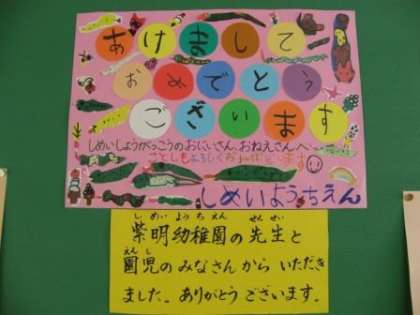 あけまして
おめでとう
ございます
しめいしょうがっこうのおにいさん、おねえさんへ
ことしもよろしくおねがいします
しめいようちえん
紫明幼稚園の先生と
園児のみなさんから いただき
ました。ありがとう ございます。